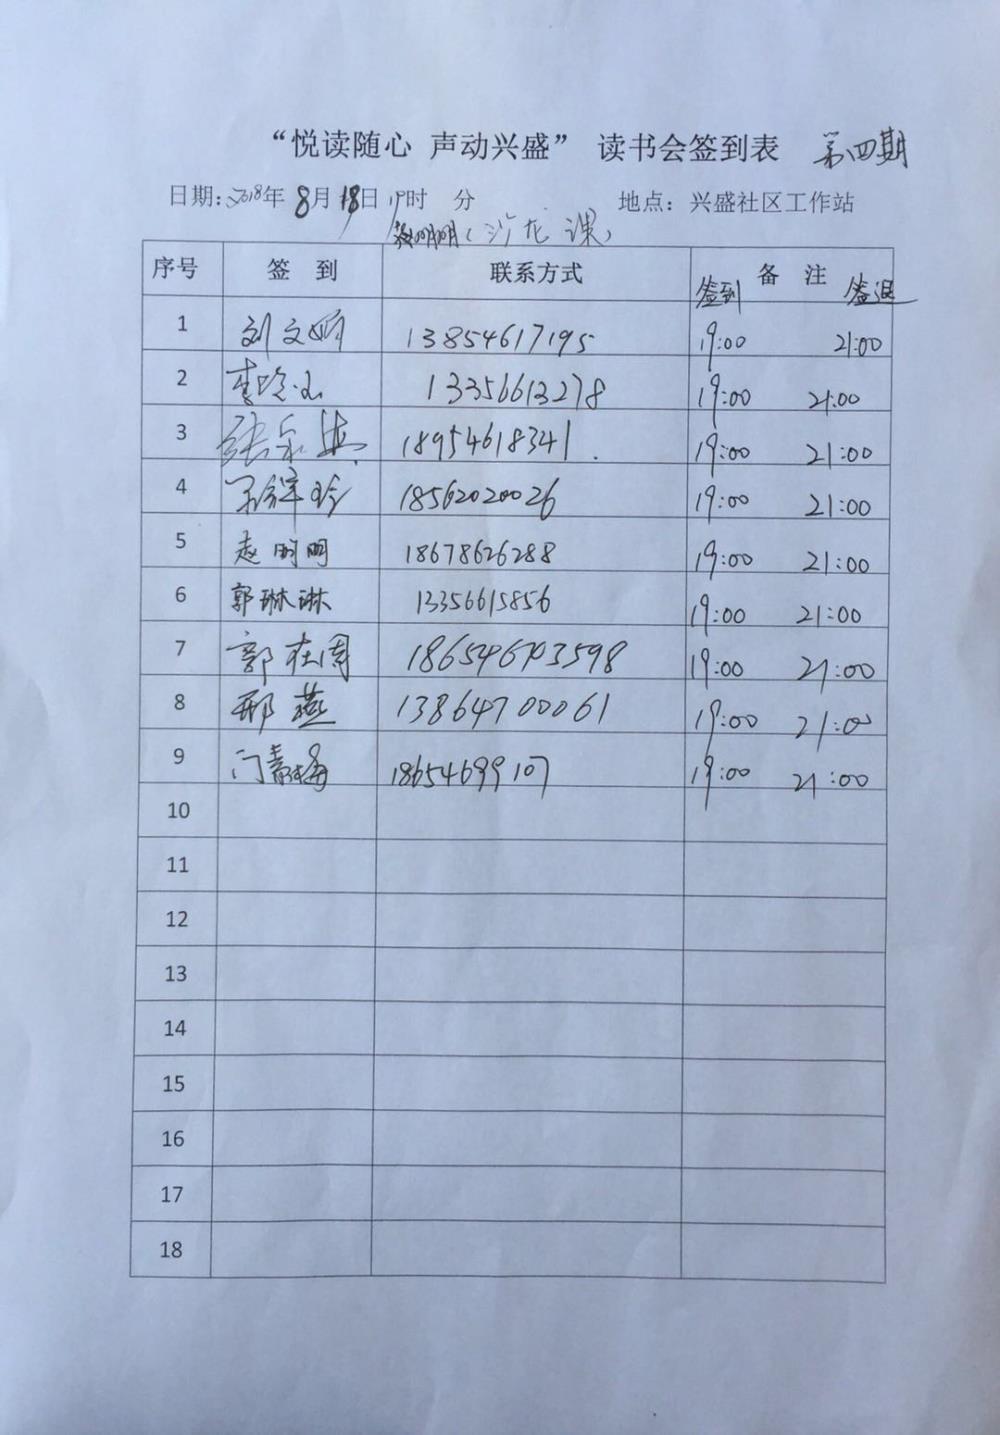 “悦读随心 声动兴盛” 读书会签到表 第四期
日期: 2018年 8月 18日 19时 分 地点: 兴盛社区工作站
(沙龙课)
序号 签 到 联系方式 备 注
签到 签退
1 刘文娟 13854617195 19:00 21:00
2 李 13356613278 19:00 21:00
3 张 18954618341. 19:00 21:00
4 18562020026 19:00 21:00
5 赵明明 18678626288 19:00 21:00
6 郭琳琳 13356615856 19:00 21:00
7 郭在国 19:00 21:00
8 邢燕 13864700061 19:00 21:00
9 门春梅 18654699107 19:00 21:00
10
11
12
13
14
15
16
17
18